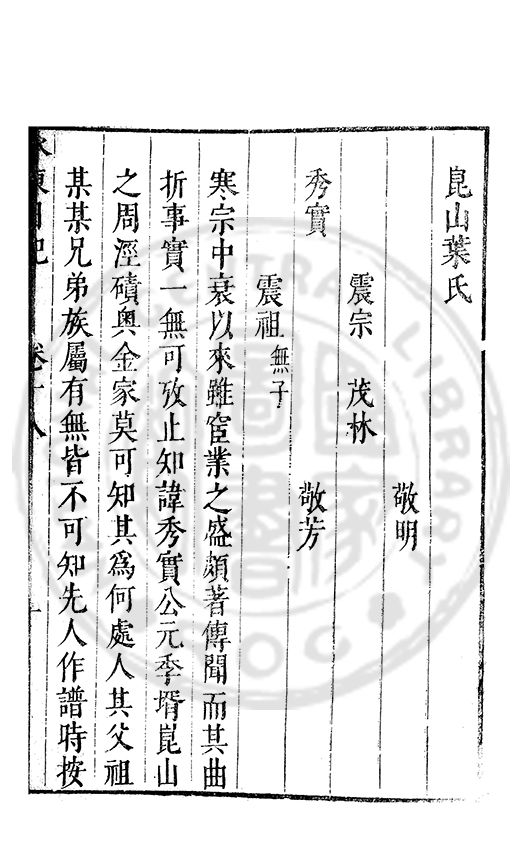 崑山葉氏
敬明
震宗　茂林
秀實　敬芳
震祖無子
寒宗中衰以來雖宦業之盛頗著傳聞而其曲
折事實一無可攷止知諱秀實公元季壻崑山
之周涇磧奧金家莫可知其為何處人其父祖
某某兄弟族屬有無皆不可知先人作譜時按
水東日記　卷十八